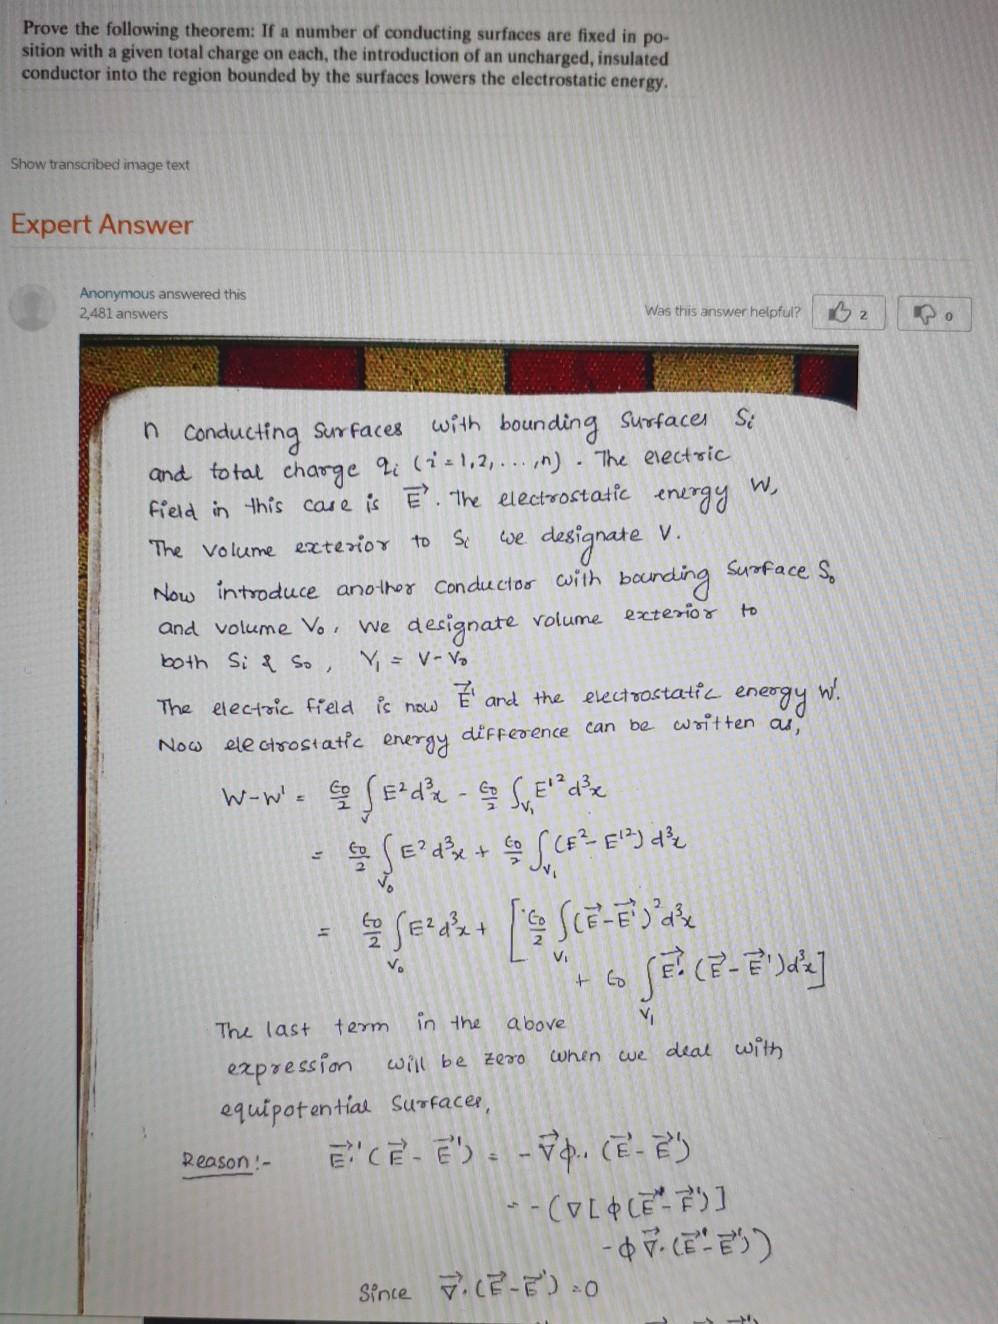 Prove the following theorem: If a number of conducting surfaces are fixed in po-
sition with a given total charge on each, the introduction of an uncharged, insulated
conductor into the region bounded by the surfaces lowers the electrostatic energy.
Show transcribed image text
Expert Answer
Anonymous answered this
2,481 answers
Was this answer helpful?
2
0
n conducting surfaces with bounding surfaces Sᵢ
and total charge qᵢ (i=1,2,...,n). The electric
field in this case is E⃗. The electrostatic energy W,
The volume exterior to Sᵢ we designate V.
Now introduce another conductor with bounding surface S₀
and volume V₀, we designate volume exterior to
both Sᵢ & S₀, V₁ = V-V₀
The electric field is now E⃗' and the electrostatic energy W'.
Now electrostatic energy difference can be written as,
W-W' = ϵ₀/2 ∫_V E² d³x - ϵ₀/2 ∫_V₁ E'² d³x
= ϵ₀/2 ∫_V₀ E² d³x + ϵ₀/2 ∫_V₁ (E²-E'²) d³x
= ϵ₀/2 ∫_V₀ E² d³x + [ϵ₀/2 ∫_V₁ (E⃗-E⃗')² d³x
+ ϵ₀ ∫_V₁ E⃗'.(E⃗-E⃗')d³x]
The last term in the above
expression will be zero when we deal with
equipotential surfaces,
Reason:- E⃗'.(E⃗-E⃗') = -∇⃗ϕ..(E⃗-E⃗')
= -(∇[ϕ(E⃗'-E⃗')]
-ϕ∇⃗.(E⃗'-E⃗'))
Since ∇⃗.(E⃗-E⃗') =0